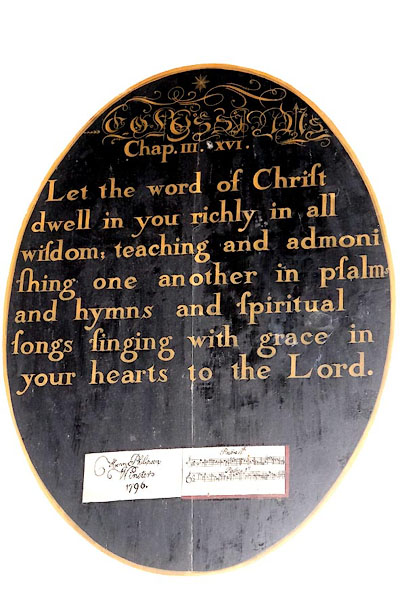 Colossians
Chap. III. XVI.
Let the word of Chriſt
dwell in you richly in all
wiſdom; teaching and admoni
ſhing one another in pſalm
and hymns and ſpiritual
ſongs ſinging with grace in
your hearts to the Lord.
1790.